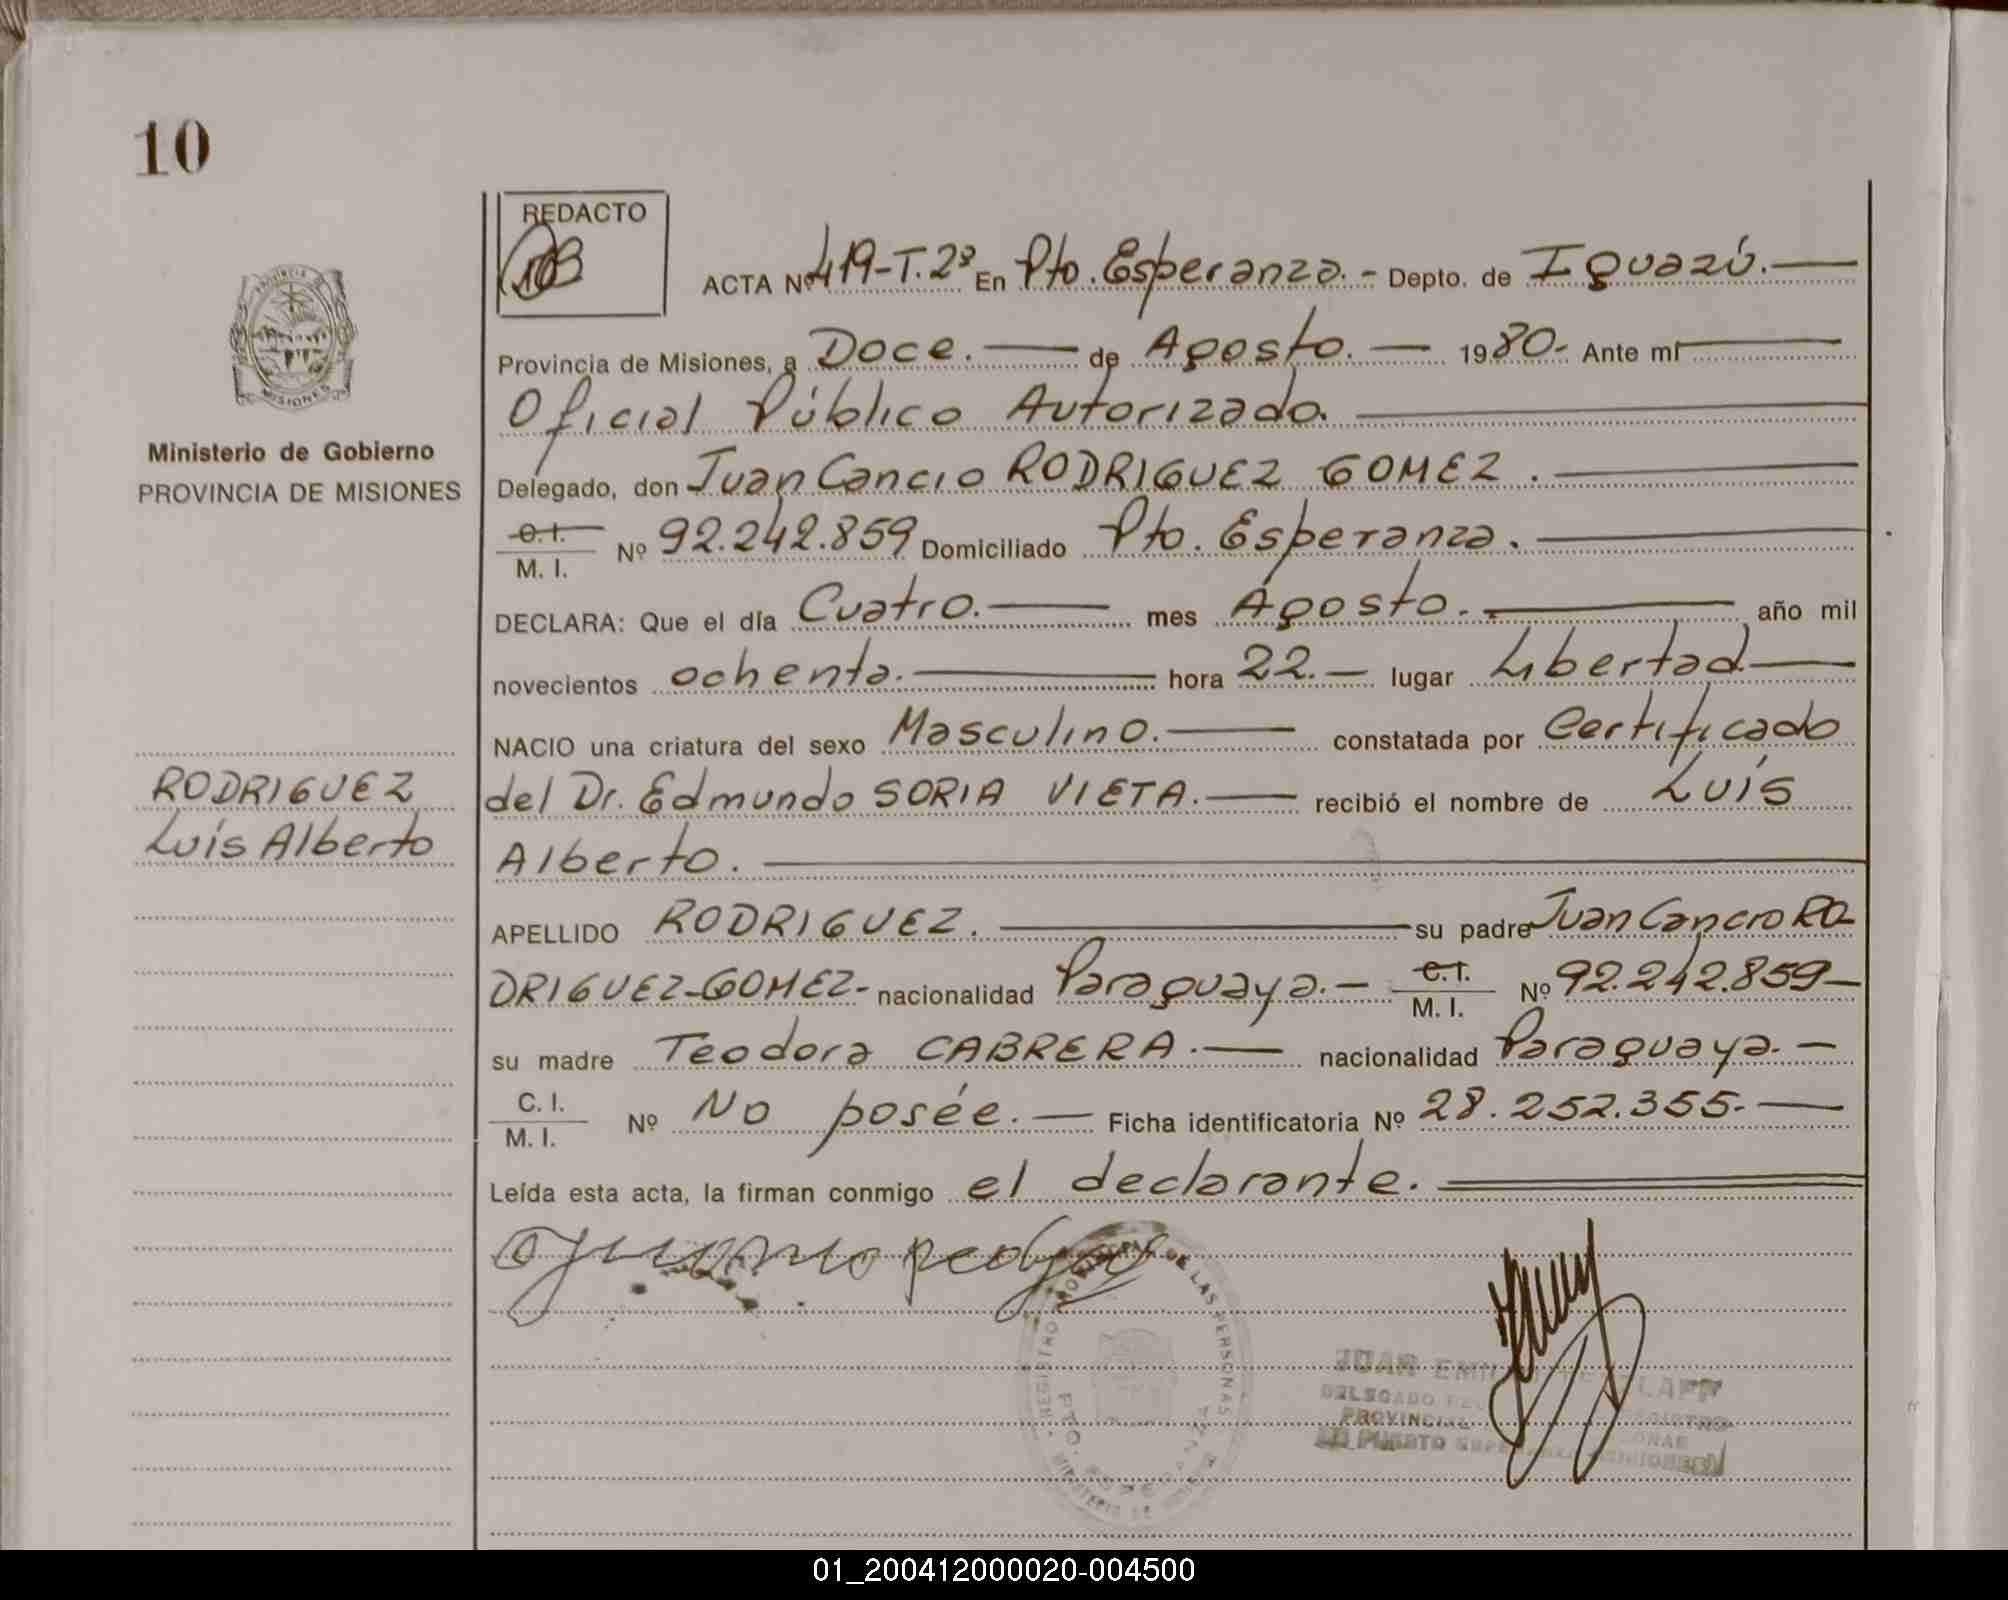 10
REDACTO
ACTA Nº 419-T.2º En Pto. Esperanza.- Depto. de Iguazú.—
PROVINCIA
MISIONES
Provincia de Misiones, a Doce.— de Agosto.— 1980.- Ante mí —
Oficial Público Autorizado.—
Ministerio de Gobierno
PROVINCIA DE MISIONES
Delegado, don Juan Cancio RODRIGUEZ GOMEZ.—
C.I.
M. I. Nº 92.242.859 Domiciliado Pto. Esperanza.—
DECLARA: Que el día Cuatro.— mes Agosto.— año mil
novecientos ochenta.— hora 22.— lugar Libertad—
NACIO una criatura del sexo Masculino.— constatada por Certificado
RODRIGUEZ
Luís Alberto
del Dr. Edmundo SORIA VIETA.— recibió el nombre de Luís
Alberto.—
APELLIDO RODRIGUEZ.— su padre Juan Cancio RO
DRIGUEZ-GOMEZ- nacionalidad Paraguaya.— C.I.
M. I. Nº 92.242.859—
su madre Teodora CABRERA.— nacionalidad Paraguaya.—
C. I.
M. I. Nº No posée.— Ficha identificatoria Nº 28.252.355.—
Leída esta acta, la firman conmigo el declarante.
REGISTRO DE LAS PERSONAS
PTO. ESPERANZA
JUAN
DELEGADO
PROVINCIAL
PUERTO
01_200412000020-004500